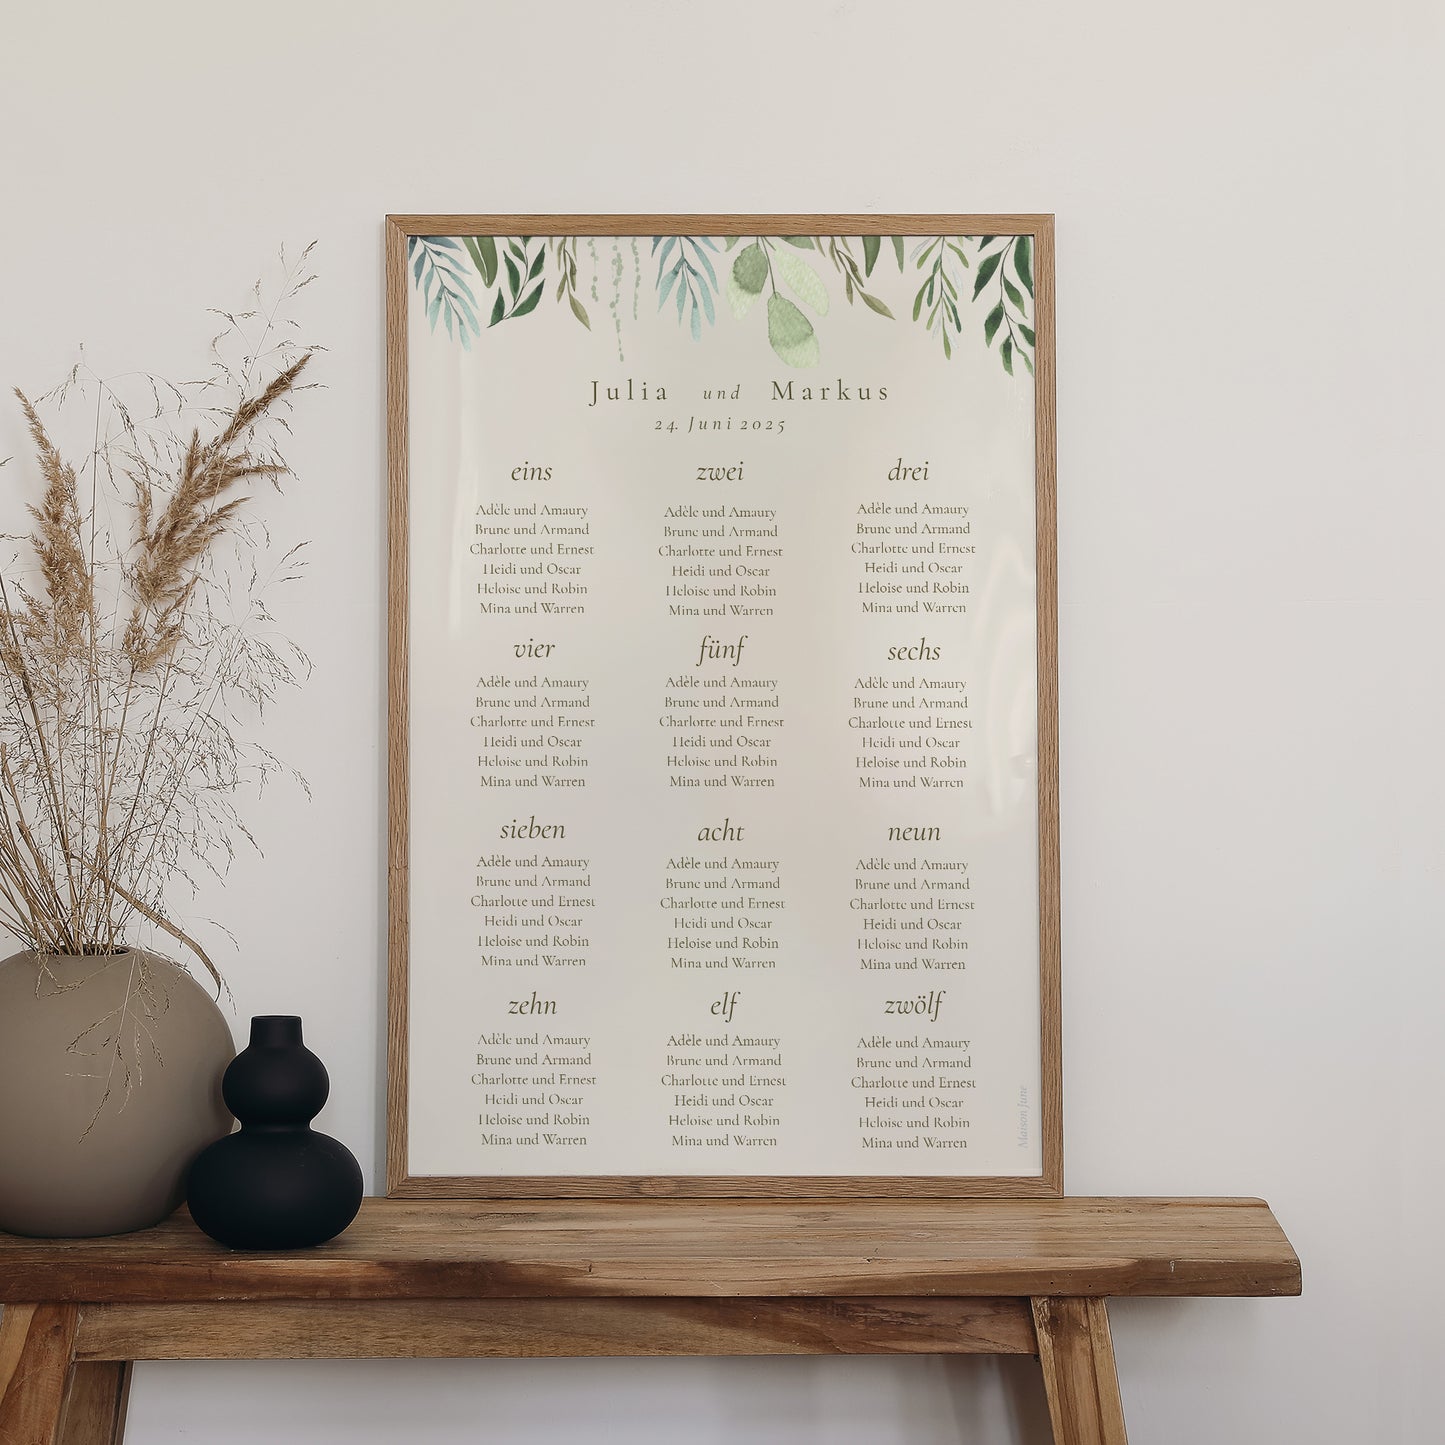 Julia und Markus
24. Juni 2025
eins
Adèle und Amaury
Brune und Armand
Charlotte und Ernest
Heidi und Oscar
Heloise und Robin
Mina und Warren
zwei
Adèle und Amaury
Brune und Armand
Charlotte und Ernest
Heidi und Oscar
Heloise und Robin
Mina und Warren
drei
Adèle und Amaury
Brune und Armand
Charlotte und Ernest
Heidi und Oscar
Heloise und Robin
Mina und Warren
vier
Adèle und Amaury
Brune und Armand
Charlotte und Ernest
Heidi und Oscar
Heloise und Robin
Mina und Warren
fünf
Adèle und Amaury
Brune und Armand
Charlotte und Ernest
Heidi und Oscar
Heloise und Robin
Mina und Warren
sechs
Adèle und Amaury
Brune und Armand
Charlotte und Ernest
Heidi und Oscar
Heloise und Robin
Mina und Warren
sieben
Adèle und Amaury
Brune und Armand
Charlotte und Ernest
Heidi und Oscar
Heloise und Robin
Mina und Warren
acht
Adèle und Amaury
Brune und Armand
Charlotte und Ernest
Heidi und Oscar
Heloise und Robin
Mina und Warren
neun
Adèle und Amaury
Brune und Armand
Charlotte und Ernest
Heidi und Oscar
Heloise und Robin
Mina und Warren
zehn
Adèle und Amaury
Brune und Armand
Charlotte und Ernest
Heidi und Oscar
Heloise und Robin
Mina und Warren
elf
Adèle und Amaury
Brune und Armand
Charlotte und Ernest
Heidi und Oscar
Heloise und Robin
Mina und Warren
zwölf
Adèle und Amaury
Brune und Armand
Charlotte und Ernest
Heidi und Oscar
Heloise und Robin
Mina und Warren
Maison June